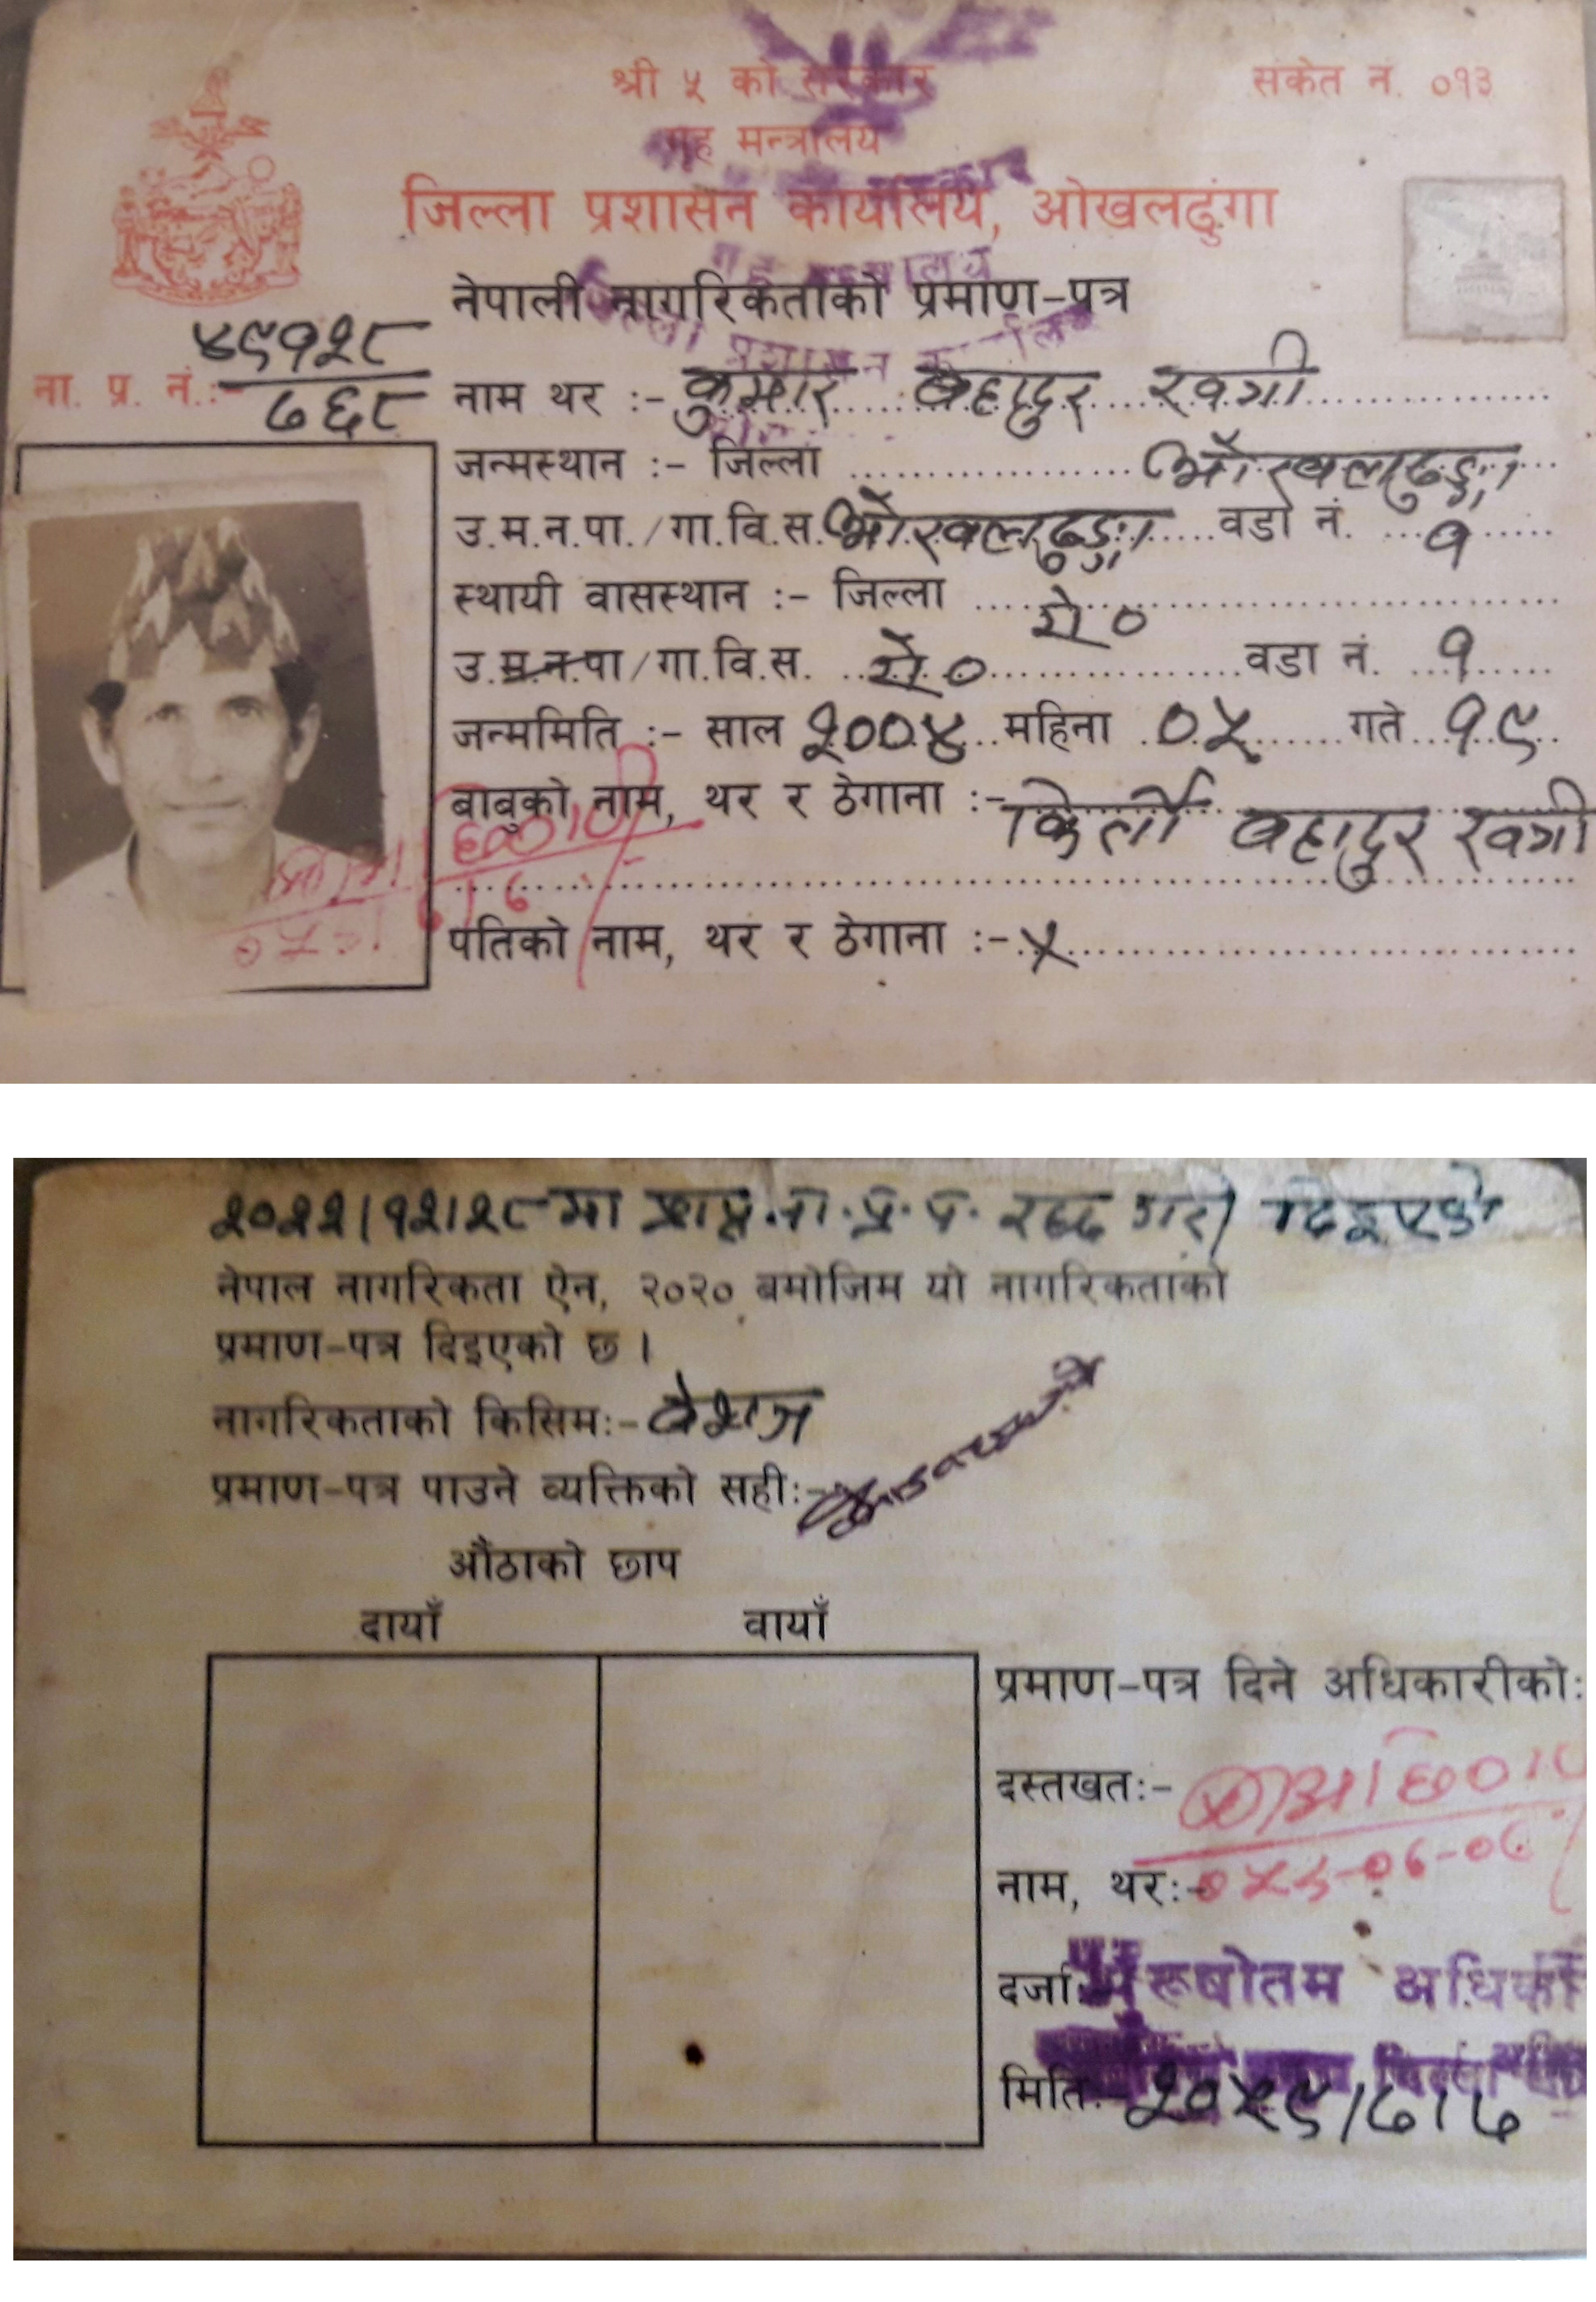 श्री ५ को सरकार
संकेत नं. ०१३
गृह मन्त्रालय
जिल्ला प्रशासन कार्यालय, ओखलढुंगा
नेपाली नागरिकताको प्रमाण-पत्र
ना. प्र. नं.:- ४९१२८/७६८
नाम थर :- कुमार बहादुर खत्री
जन्मस्थान :- जिल्ला ओखलढुङ्गा
उ.म.न.पा./गा.वि.स. ओखलढुङ्गा वडा नं. १
स्थायी वासस्थान :- जिल्ला ऐ०
उ.म.न.पा/गा.वि.स. ऐ० वडा नं. १
जन्ममिति :- साल २००४ महिना ०५ गते १९
बाबुको नाम, थर र ठेगाना :- किर्ती बहादुर खत्री
पतिको नाम, थर र ठेगाना :- x
२०२२।१२।२८ मा प्राप्त ना.प्र.प. रद्द गरी दिइएको
नेपाल नागरिकता ऐन, २०२० बमोजिम यो नागरिकताको
प्रमाण-पत्र दिइएको छ ।
नागरिकताको किसिम:- वंशज
प्रमाण-पत्र पाउने व्यक्तिको सही:-
औंठाको छाप
दायाँ वायाँ
प्रमाण-पत्र दिने अधिकारीको:
दस्तखत:-
नाम, थर:-
दर्जा पुरूषोतम अधिका
मिति:- २०५९।७।७